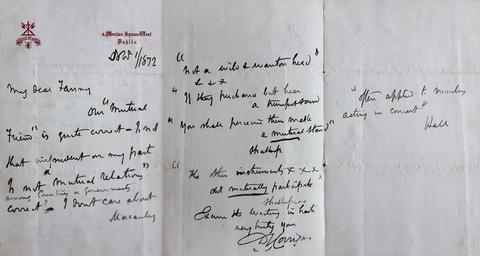 4, Merrion Square West
Dublin
Novr 1/1872
My dear Fanny
Our "Mutual
Friend" is quite correct – & not
that impudent on my part
"Is not Mutual Relations"
among Countries or Governments
correct? – I dont care about
Macaulay
"Not a wild & wanton herd"
x x x
"If they perchance but hear
a trumpet sound
"You shall perceive them make
a mutual stand"
Shaksp
"The other instruments x x x
did mutually participate
Shakspeare
Excuse the writing in haste
very truly yours
"Often applied to numbers
acting in concert"
Hall